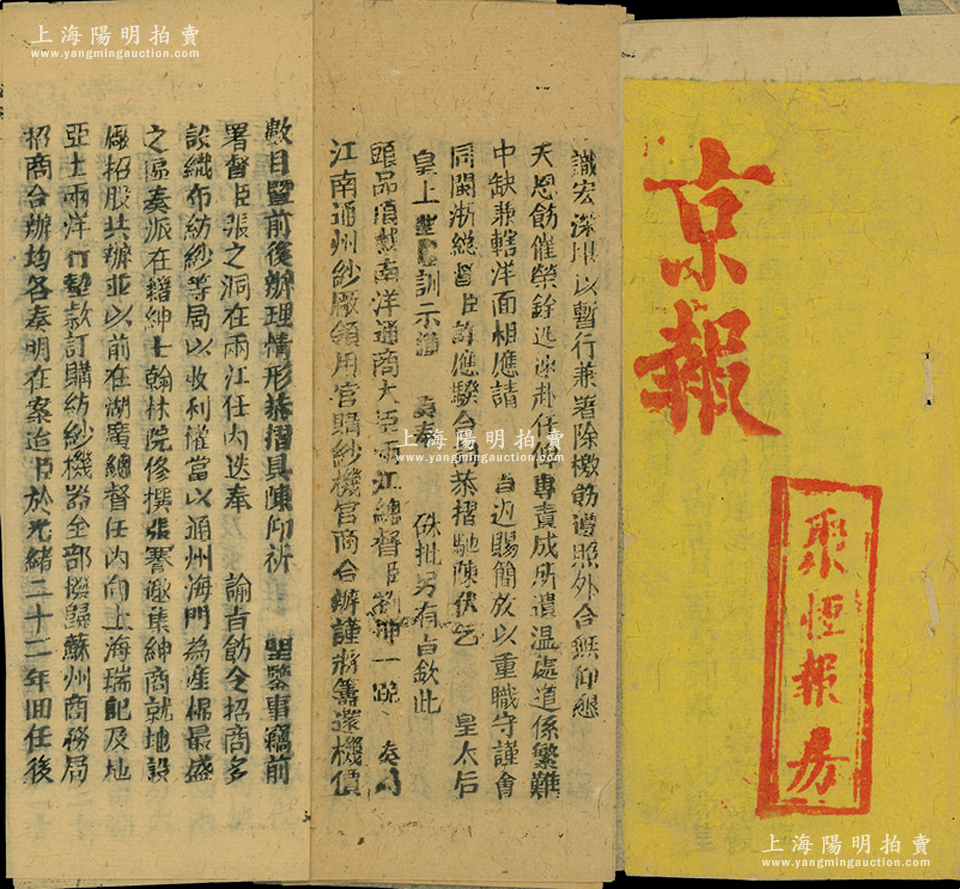 京報
聚恒報房
識宏深用以暫行兼署除檄飭遵照外合無仰懇
天恩飭催榮銓迅速赴任俾專責成所遺温處道係繁難
中缺兼轄洋面相應請 旨迅賜簡放以重職守謹會
同閩浙總督臣許應騤合詞恭摺馳陳伏乞 皇太后
皇上聖訓示謹 奏奉 硃批另有旨欽此
頭品頂戴南洋通商大臣兩江總督臣劉坤一跪 奏為
江南通州紗廠領用官購紗機官商合辦謹將籌還機價
數目暨前後辦理情形恭摺具陳仰祈 聖鑒事竊前
署督臣張之洞在兩江任內迭奉 諭旨飭令招商多
設織布紡紗等局以收利權當以通州海門為產棉最盛
之區奏派在籍紳士翰林院修撰張謇邀集紳商就地設
廠招股共辦並以前在湖廣總督任內向上海瑞記及地
亞士兩洋行墊款訂購紡紗機器全部撥歸蘇州商務局
招商合辦均各奏明在案迨臣於光緒二十二年回任後
上海陽明拍賣
www.yangmingauction.com
上海陽明拍賣
www.yangmingauction.com
上海陽明拍賣
www.yangmingauction.com